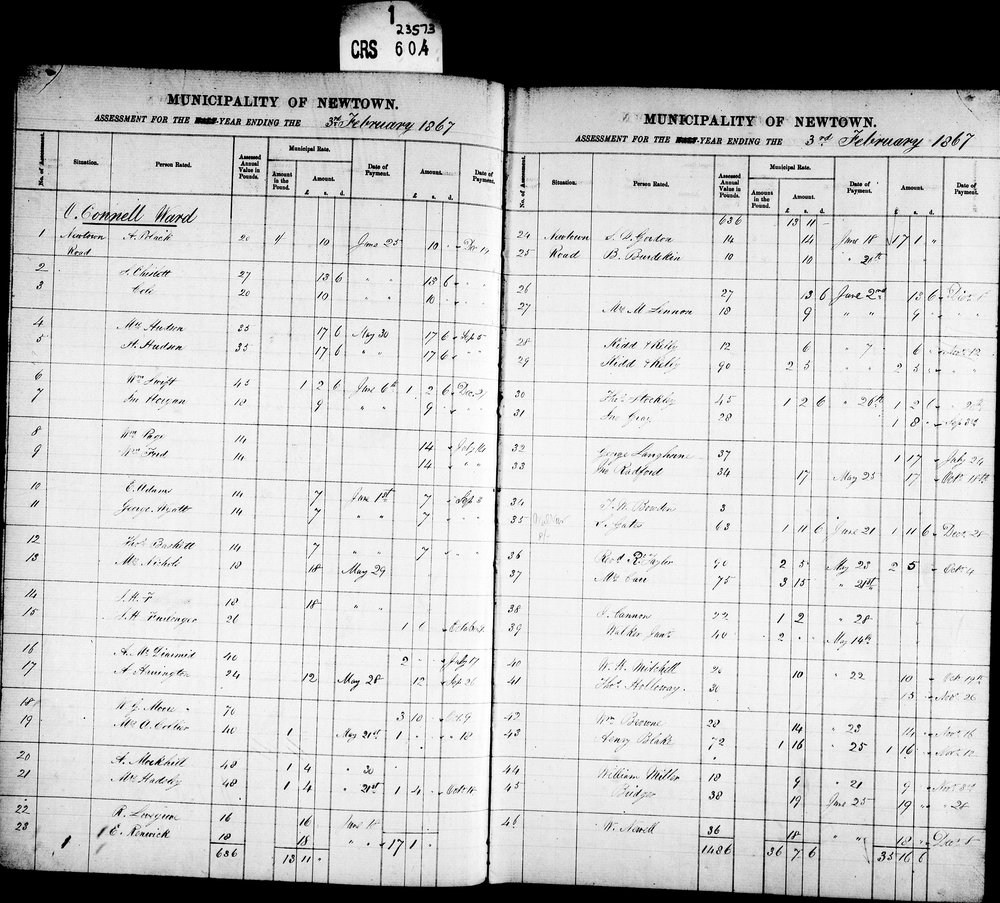 1
23573
CRS 604
MUNICIPALITY OF NEWTOWN.
ASSESSMENT FOR THE HALF-YEAR ENDING THE 3rd February 1867
No. of Assessment. Situation. Person Rated. Assessed Annual Value in Pounds. Municipal Rate. Amount in the Pound. Amount. £ s. d. Date of Payment. Amount. £ s. d. Date of Payment.
O'Connell Ward
1 Newtown Road A. Black 20 10 June 25 10
2 27 13 6 " " 13 6 " "
3 Cole 20 10 " " 10 " "
4 Mrs Hudson 35 17 6 May 30 17 6 " Sep 5
5 H. Hudson 35 17 6 " " 17 6 "
6 Wm Swift 45 1 2 6 June 6th 1 2 6 " Dec 21
7 Jno Horgan 18 9 " " 9 " "
8 Wm Page 14 14 " July 14
9 Wm Ford 14 14 " " "
10 E. Adams 14 7 June 1st 7 " Sep 3
11 George Hyatt 14 7 " " 7 " "
12 Thos Baskett 14 7 " " 7 " "
13 Mrs Nichols 18 18 May 29
14 18 18 " "
15 26 1 6
16 40 2 " " July 17
17 A. Arrington 24 12 May 28 12 " Sep 26
18 W. G. Moore 70 3 10 " Oct 9
19 40 1 May 21st 1 " " 18
20 48 1 4 " 30
21 Mrs Hadsley 48 1 4 " 21st 1 4 " Oct 18
22 16 16 June 18
23 E. Renwick 18 18 " " 17 1
636 13 11 "
MUNICIPALITY OF NEWTOWN.
ASSESSMENT FOR THE HALF-YEAR ENDING THE 3rd February 1867
No. of Assessment. Situation. Person Rated. Assessed Annual Value in Pounds. Municipal Rate. Amount in the Pound. Amount. £ s. d. Date of Payment. Amount. £ s. d. Date of Payment.
636 13 11
24 Newtown Road S. D. Gordon 14 14 June 18 17 1 "
25 B. Burdekin 10 10 " 21st
26 27 13 6 June 2nd 13 6 " Dec 1
27 Mrs M. Lennon 18 9 " " 9 " "
28 Kidd & Kelly 12 6 " 7 6 " Nov 12
29 Kidd & Kelly 90 2 5 " " 2 5 " "
30 Thos Stockley 45 1 2 6 " 26th 1 2 6
31 Jno Gray 28 1 8
32 George Langhorne 37 1 17 " July 24
33 Jno Radford 34 17 May 25 17 " Oct 18th
34 T. W. Bowden 3
35 S. Gates 63 1 11 6 June 21 1 11 6 " Dec 21
36 Revd Rt Taylor 90 2 5 May 23 2 5 " Oct 4
37 Mrs Carr 75 3 15 " 21st
38 J. Cannon 22 1 2 " 28
39 Walker Junr 40 2 " May 14th
40 W. H. Mitchell 20 10 " 22 10 " Oct 19th
41 Thos Holloway 30 15 " Nov 26
42 Wm Browne 28 14 " 23 14 " Nov 16
43 Henry Blake 72 1 16 " 25 1 16 " Nov 12
44 William Miller 18 9 " 21 9
45 Bridger 38 19 June 25 19 " " 28
46 W. Newell 36 18 " " 18 " Dec 1
1486 36 7 6 35 16 6